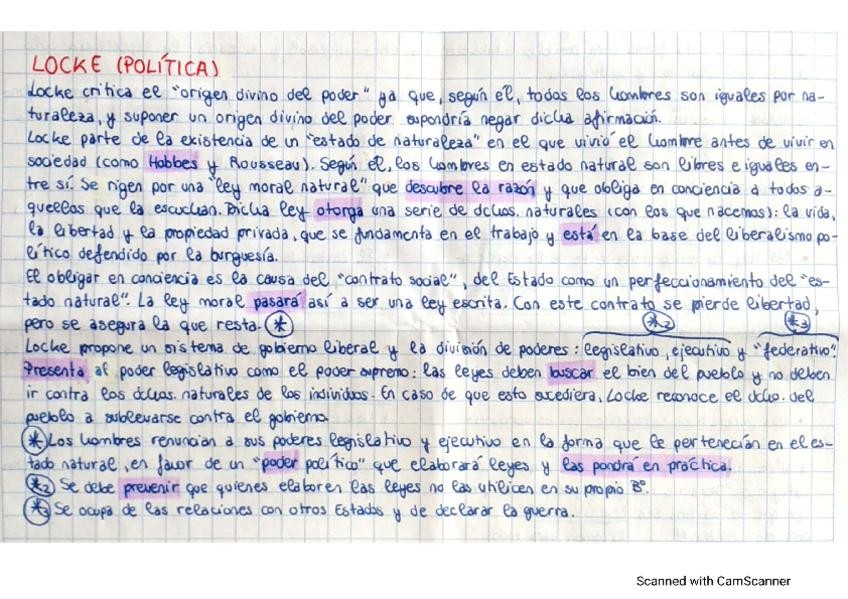 LOCKE (POLÍTICA)
Locke critica el "origen divino del poder" ya que, según él, todos los hombres son iguales por na-
turaleza, y suponer un origen divino del poder supondría negar dicha afirmación.
Locke parte de la existencia de un "estado de naturaleza" en el que vivió el hombre antes de vivir en
sociedad (como Hobbes y Rousseau). Según él, los hombres en estado natural son libres e iguales en-
tre sí. Se rigen por una "ley moral natural" que descubre la razón y que obliga en conciencia a todos a-
quellos que la escuchan. Dicha ley otorga una serie de dchos. naturales (con los que nacemos): la vida,
la libertad y la propiedad privada, que se fundamenta en el trabajo y está en la base del liberalismo po-
lítico defendido por la burguesía.
El obligar en conciencia es la causa del "contrato social", del Estado como un perfeccionamiento del "es-
tado natural". La ley moral pasará así a ser una ley escrita. Con este contrato se pierde libertad,
pero se asegura la que resta. * *2 *3
Locke propone un sistema de gobierno liberal y la división de poderes: legislativo, ejecutivo y "federativo".
Presenta al poder legislativo como el poder supremo: las leyes deben buscar el bien del pueblo y no deben
ir contra los dchos. naturales de los individuos. En caso de que esto sucediera, Locke reconoce el dcho. del
pueblo a sublevarse contra el gobierno.
* Los hombres renuncian a sus poderes legislativo y ejecutivo en la forma que le pertenecían en el es-
tado natural, en favor de un "poder político" que elaborará leyes y las pondrá en práctica.
*2 Se debe prevenir que quienes elaboren las leyes no las utilicen en su propio Bº.
*3 Se ocupa de las relaciones con otros Estados y de declarar la guerra.
Scanned with CamScanner